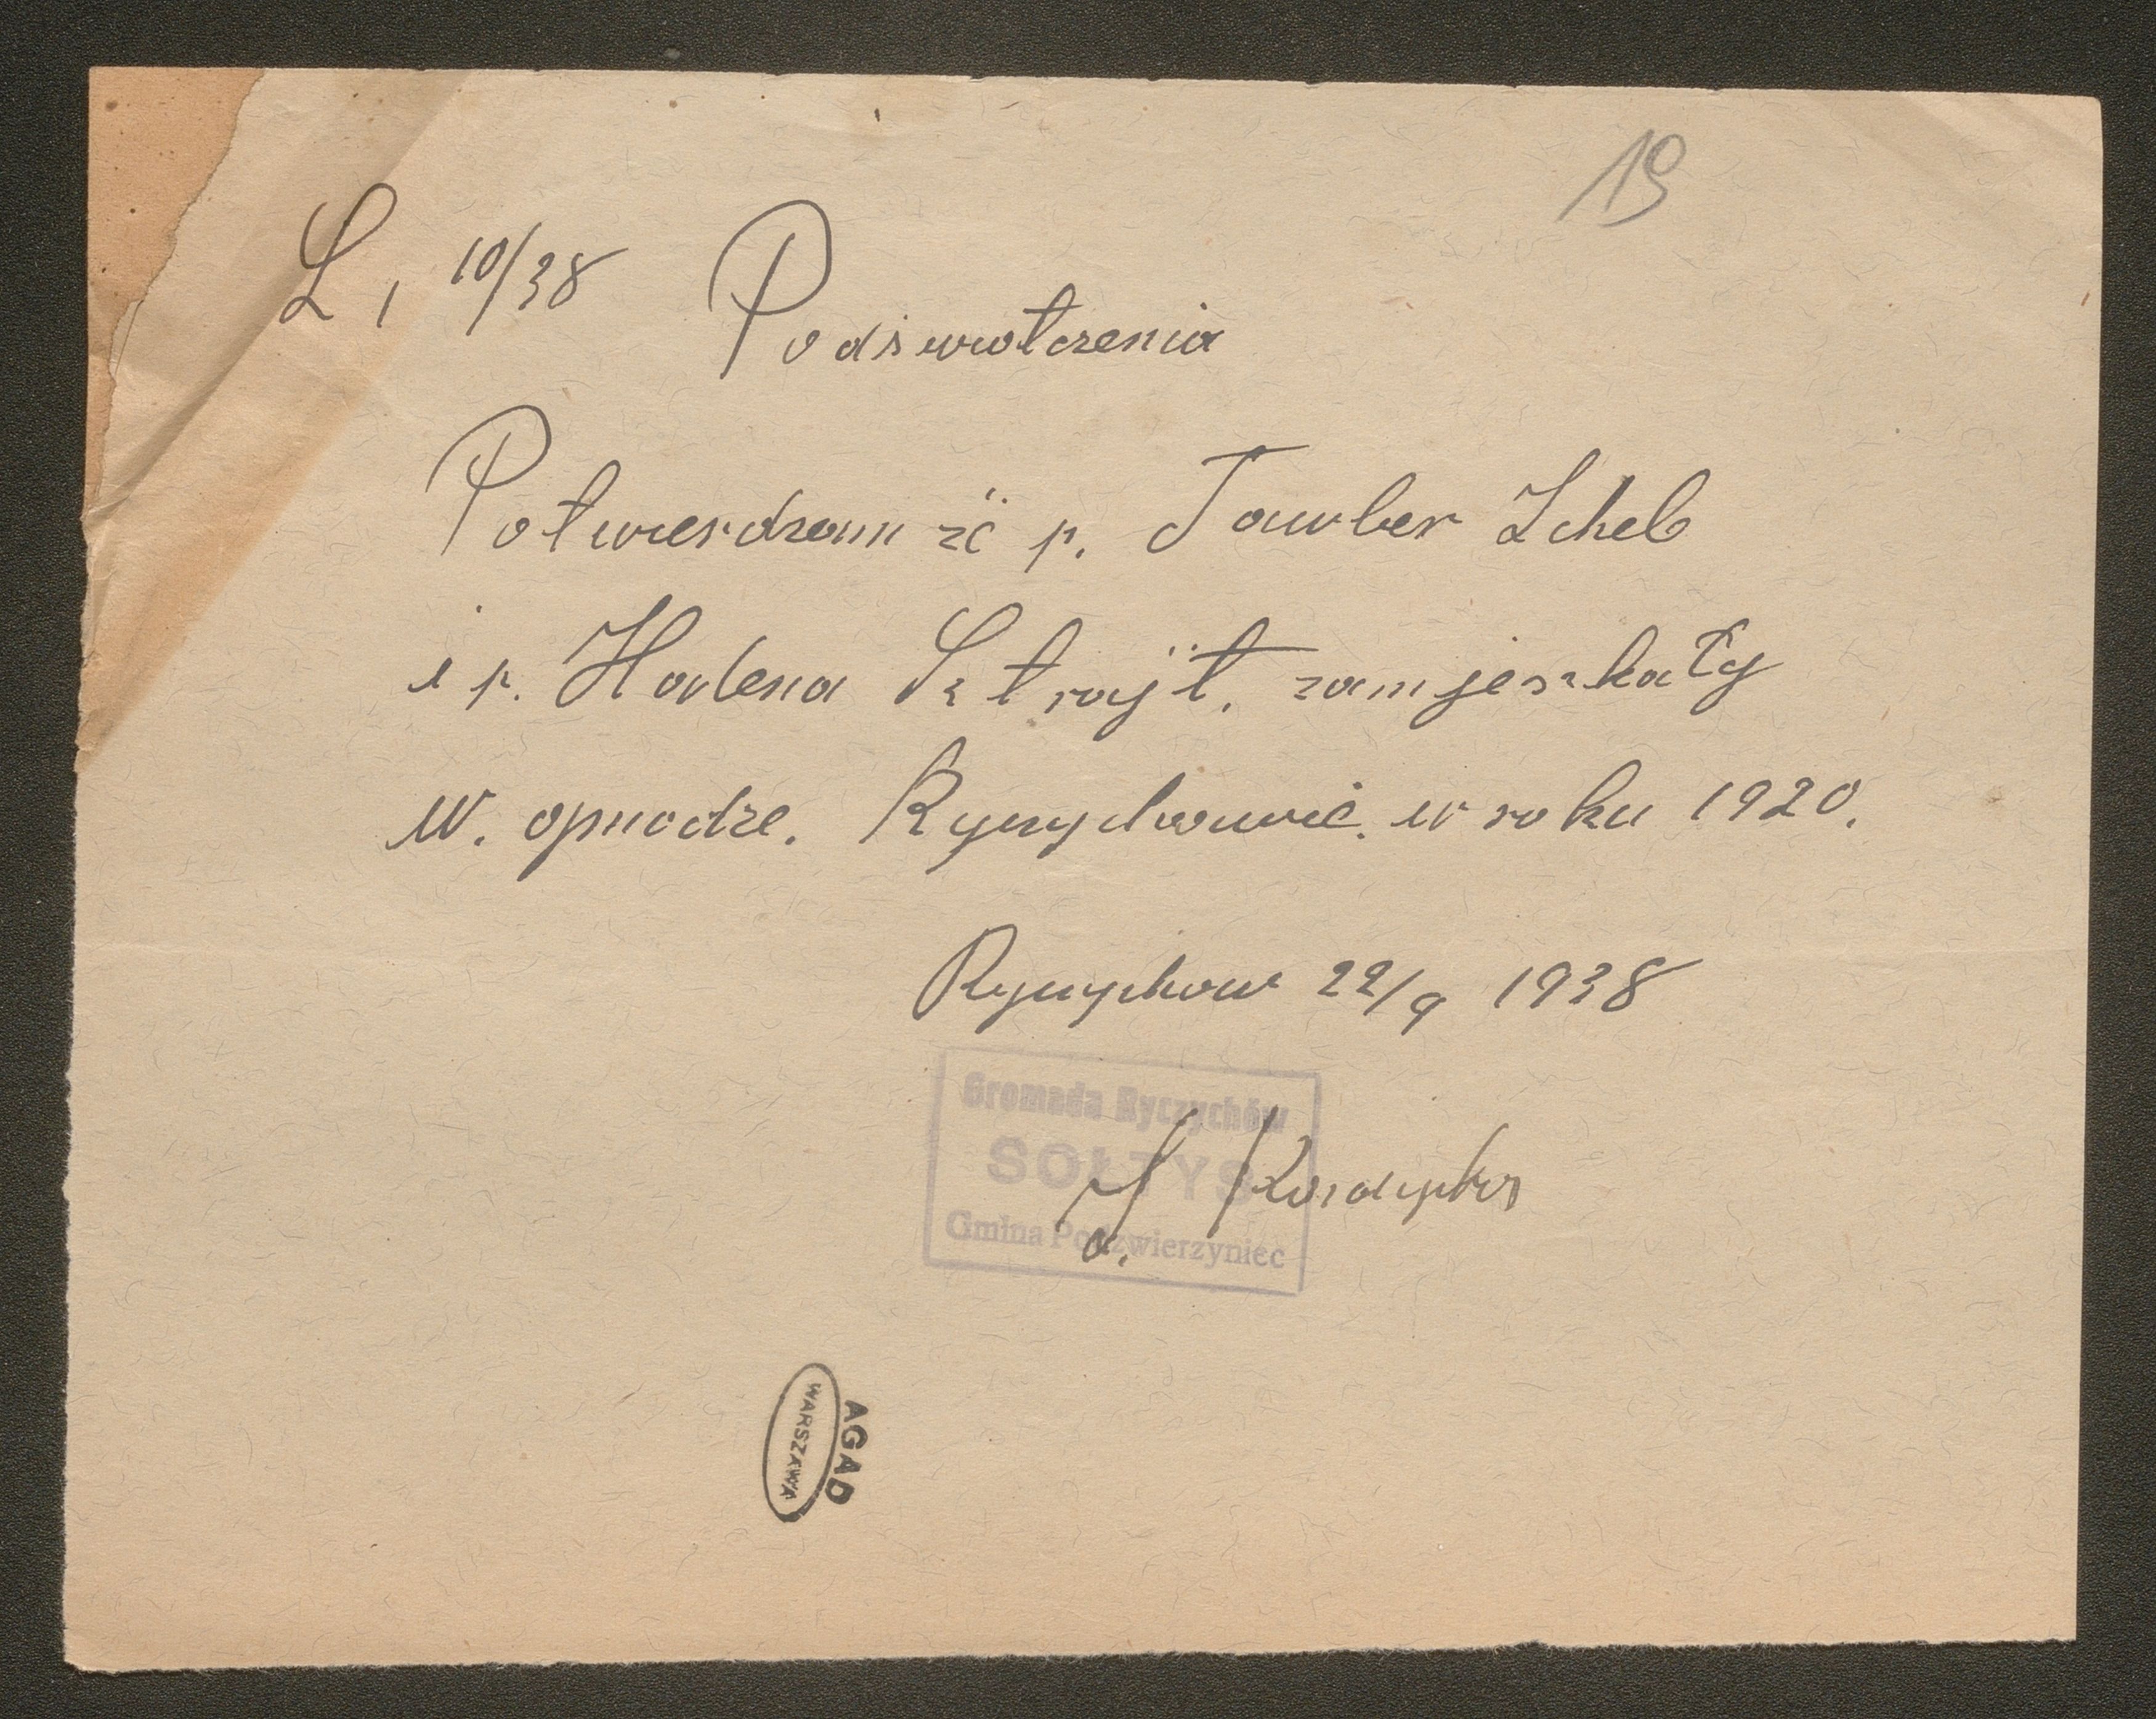 19
L, 10/38 Podświotczenia
Potwierdzam że p. Tauber Ichel
i p. Hadena Sztrajt. zamjeszkały
W. opwodze. Ryczychowie. w roku 1920.
Ryczychow 22/9 1938
Gromada Ryczychów
SOŁTYS
Gmina Podzwierzyniec
AGAD
WARSZAWA